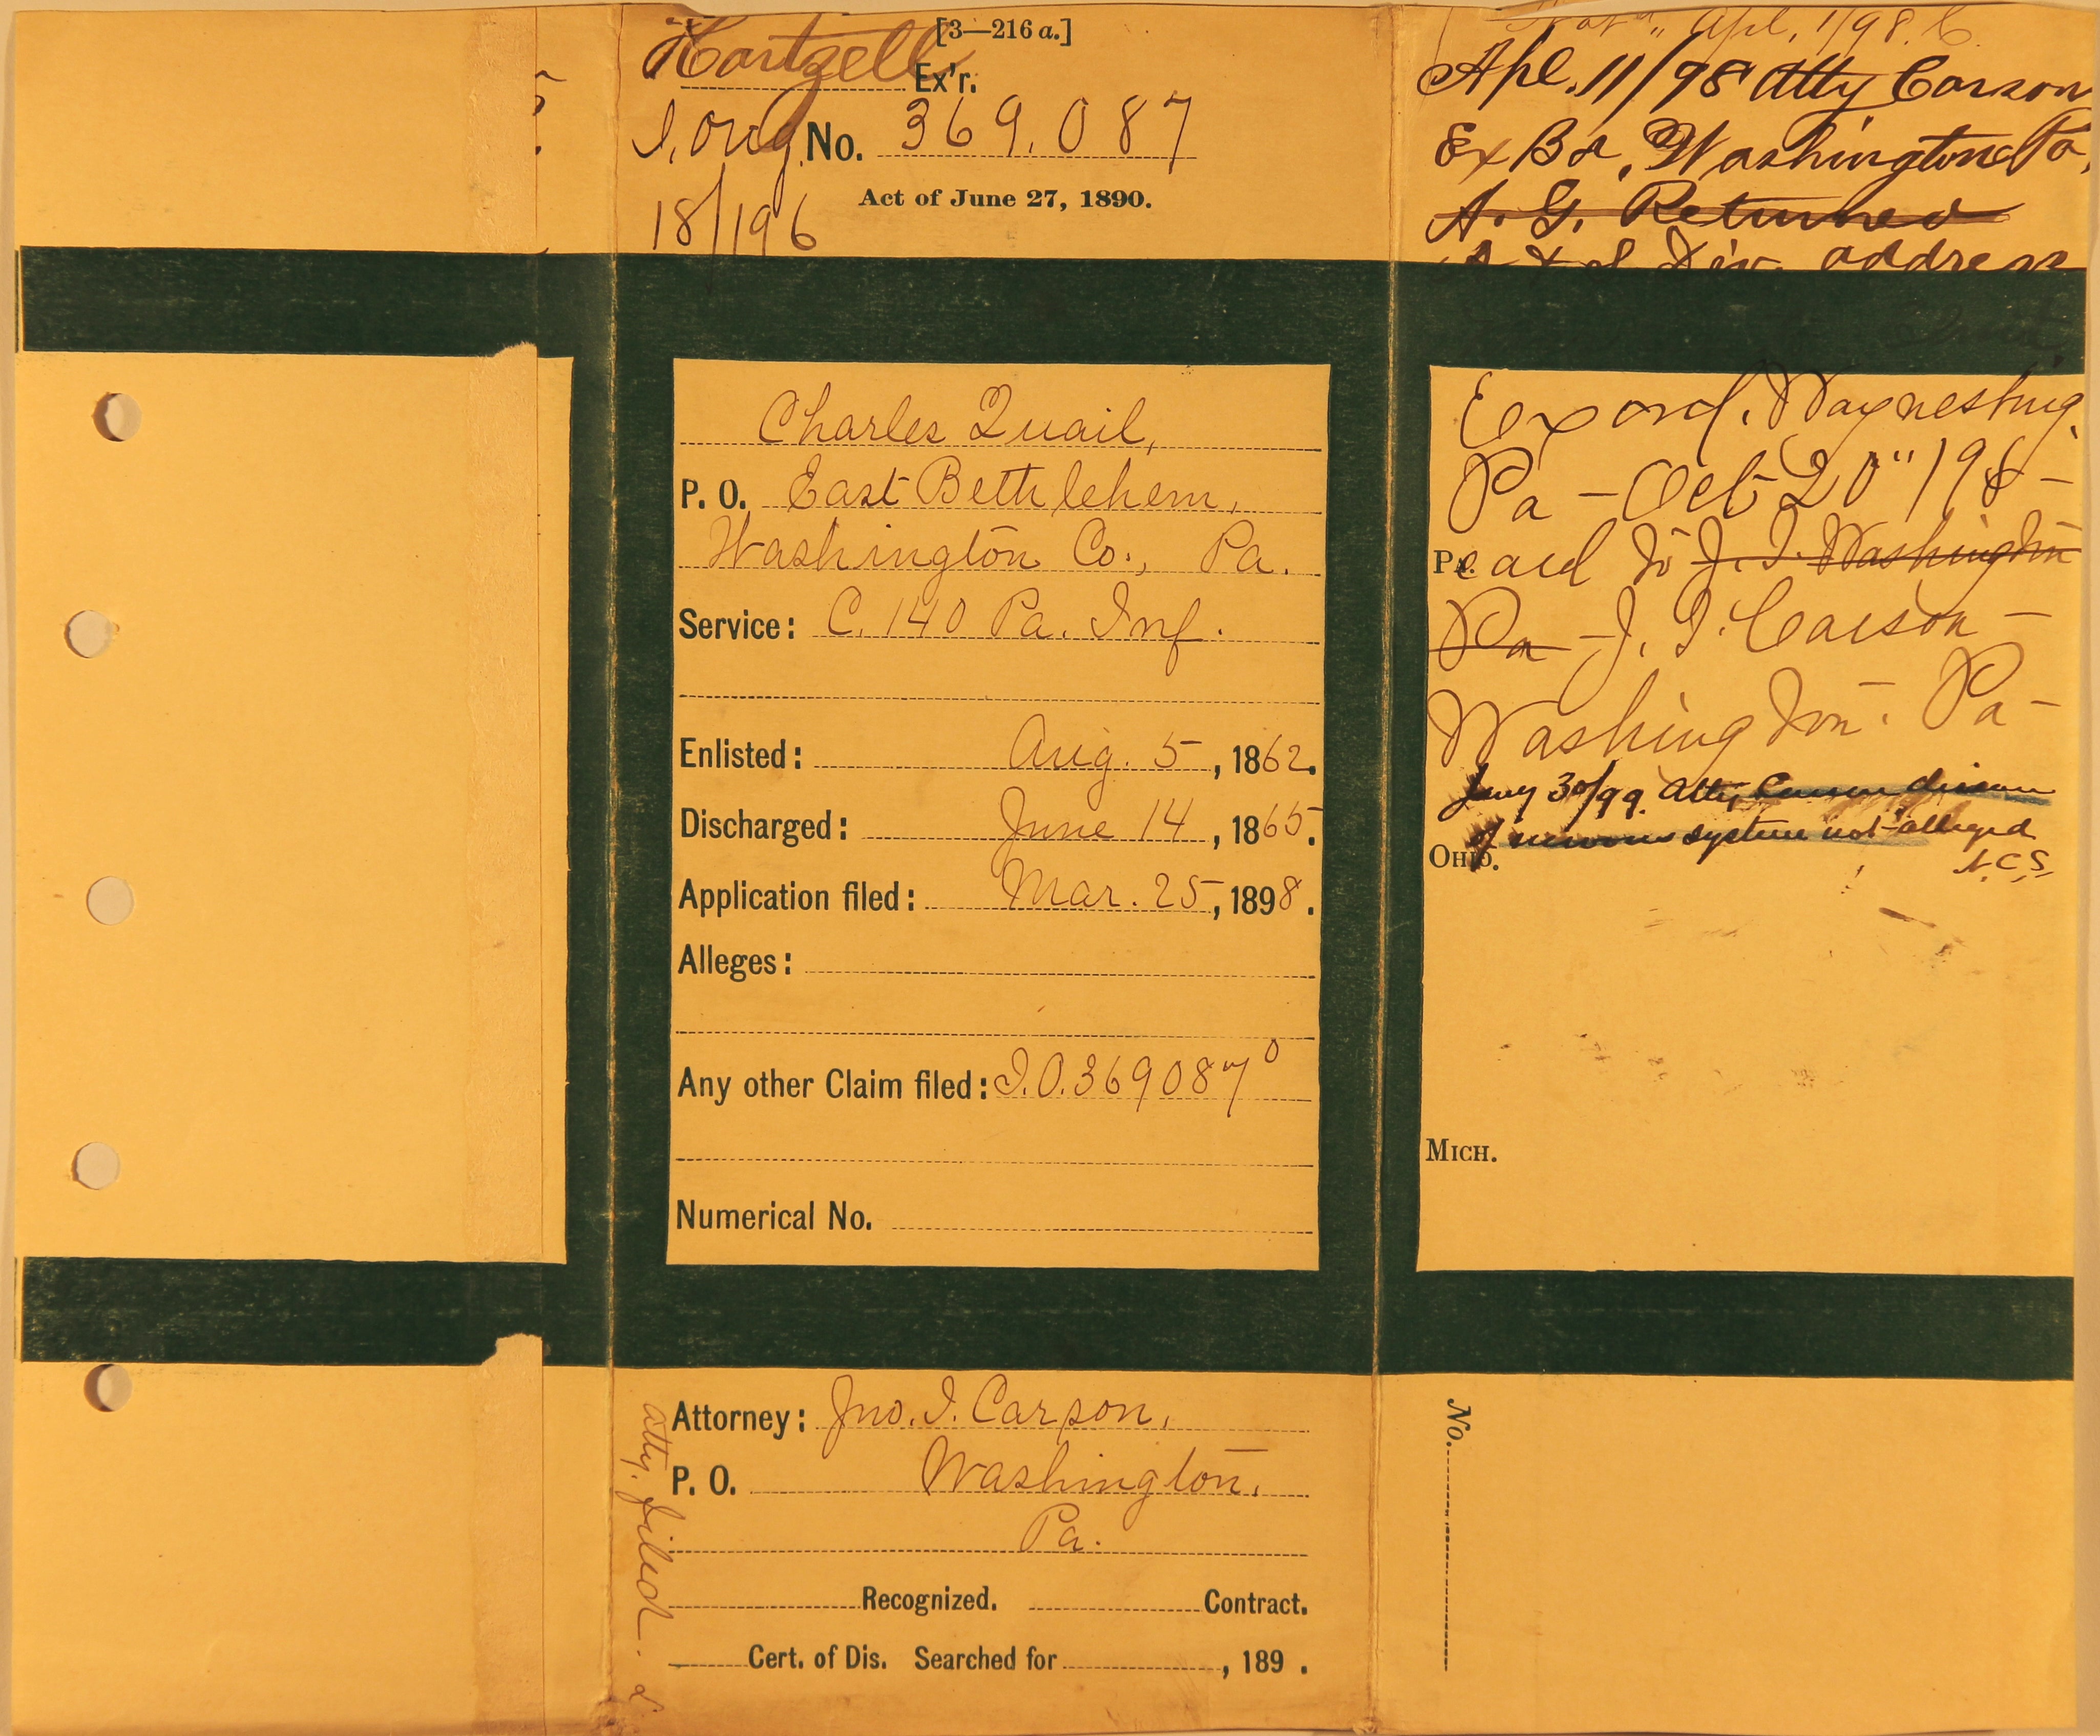 [3—216 a.]
Hartzell Ex'r.
I. Orig. No. 369.087
18/196
Act of June 27, 1890.
Charles Quail,
P. O. East Bethlehem,
Washington Co., Pa.
Service: C. 140 Pa. Inf.
Enlisted: Aug. 5, 1862.
Discharged: June 14, 1865.
Application filed: Mar. 25, 1898.
Alleges:
Any other Claim filed: I.O. 369087 0
Numerical No.
Attorney: Jno. I. Carson,
P. O. Washington,
Pa.
Recognized. Contract.
Cert. of Dis. Searched for , 189 .
atty. filed.
Apl, 1/98.
Apl. 11/98 Atty Carson
Ex Bd, Washington Pa,
A. G. Returned
Div. address
Ex ord. Waynesburg
Pa – Oct 20" / 98 –
Pa. card to J. I. Washington
Pa – J. I. Carson –
Washington. Pa –
Jany 30/99. Atty Carson disease
of nervous system not alleged
N.C.S.
Ohio.
Mich.
No.